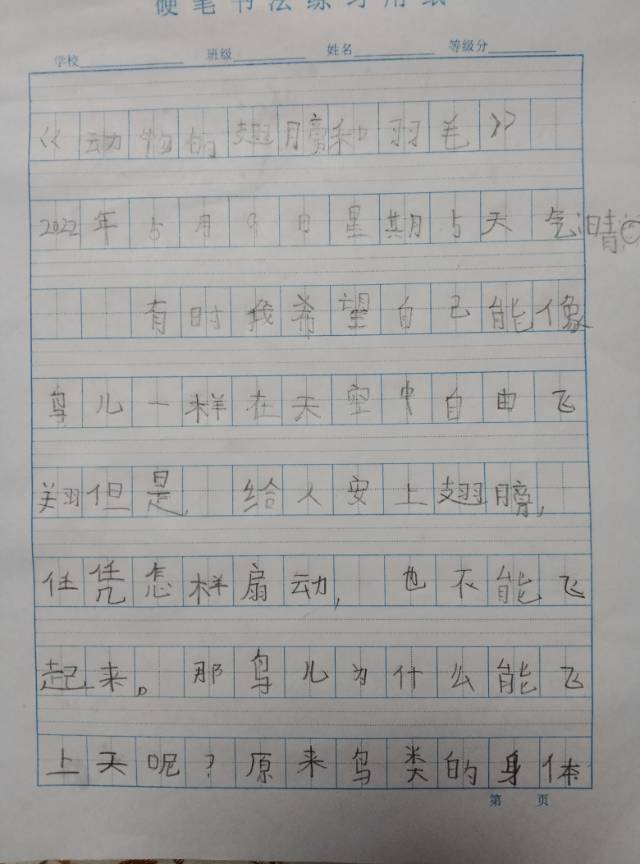 硬笔书法练习用纸
学校 班级 姓名 等级分
《动物的翅膀和羽毛》
2022年5月9日星期5天气:晴
有时我希望自己能像
鸟儿一样在天空中自由飞
翔但是,给人安上翅膀,
任凭怎样扇动,也不能飞
起来。那鸟儿为什么能飞
上天呢?原来鸟类的身体
第 页